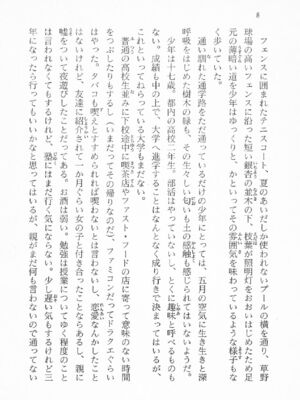 8
フェンスに囲まれたテニスコート、夏のあいだしか使われないプールの横を通り、草野
球場の高いフェンスに沿った短い銀杏の並木の下、枝葉が照明灯をおおいはじめたため足
元の薄暗い道を少年はゆっくりと、かといってその雰囲気を味わっているような様子もな
く歩いていた。
通い馴れた通学路をただ通っているだけの少年にとっては、五月の空気に生き生きと深
呼吸をはじめた樹木の緑も、その生々しい匂いも土の感触も感じられてはいないようだ。
少年は十七歳。都内の高校に三年生。部活はやっていないし、とくに趣味と呼べるものも
ない。成績も中の上で、大学へ進学することはなんとなく成り行きで決まってはいるが、
これといってねらっている大学もまだない。
普通の高校生並みに下校途中に喫茶店やファスト・フードの店に寄って意味のない時間
をつぶしたりもするし、まだまだってその帰りなのだ。ファミコンだってドラクエぐらい
はやった。タバコも喫えとすすめられれば喫わないとは言わないし、恋愛なんかしたこと
はないけれど、友達に紹介されて一カ月ぐらい女の子と付き合ったこともあるし、親に
嘘をついて夜遊びしたことだってある。お酒は弱い。勉強は授業についてゆく程度のこと
は言われなくてもするけれど、塾にはまだ行く気にならない。少し遅い気もするけれど三
年になったら行ってもいいかなと思ってはいるが、親がまだ何も言わないので通ってない